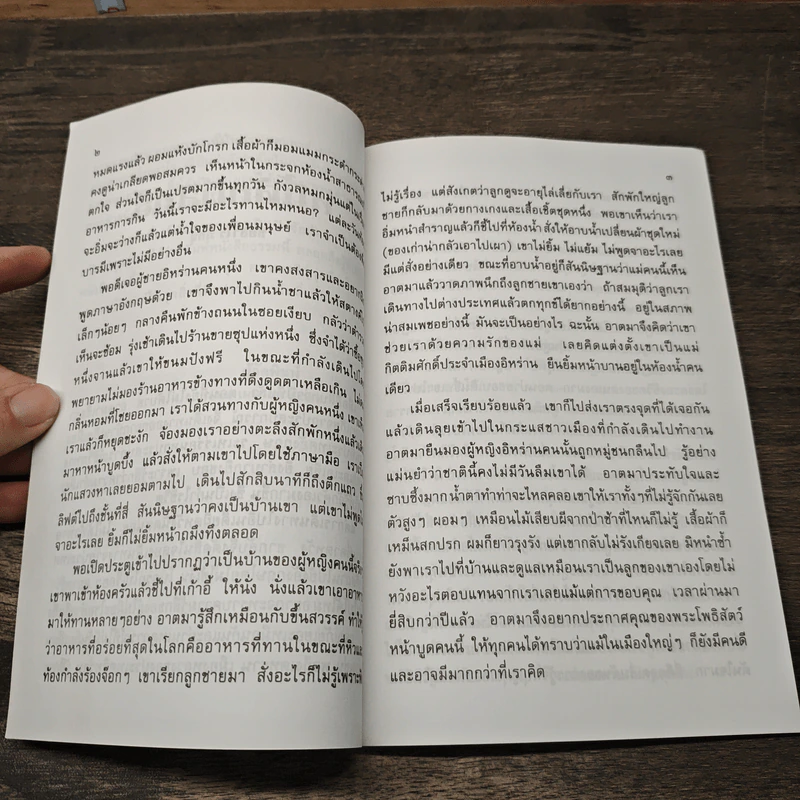 ๒
หมดแรงแล้ว ผอมแห้งบักโกรก เสื้อผ้าก็มอมแมมกระดำกระ
คงดูน่าเกลียดพอสมควร เห็นหน้าในกระจกห้องน้ำสาธาร
ตกใจ ส่วนใจก็เป็นเปรตมากขึ้นทุกวัน กังวลหมกมุ่นแต่ใน
อาหารการกิน วันนี้เราจะมีอะไรทานไหมหนอ? แต่ละวัน
จะอิ่มจะว่างก็แล้วแต่น้ำใจของเพื่อนมนุษย์ เราจำเป็นต้อง
บารมีเพราะไม่มีอย่างอื่น
พอดีเจอผู้ชายอิหร่านคนหนึ่ง เขาคงสงสารและอยาก
พูดภาษาอังกฤษด้วย เขาจึงพาไปกินน้ำชาแล้วให้สตางค์
เล็กๆน้อยๆ กลางคืนพักข้างถนนในซอยเงียบ กลัวว่าตำรว
เห็นจะซ้อม รุ่งเช้าเดินไปร้านขายซุปแห่งหนึ่ง ซึ่งจำได้ว่าซื้อ
หนึ่งจานแล้วเขาให้ขนมปังฟรี ในขณะที่กำลังเดินไปใน
พยายามไม่มองร้านอาหารข้างทางที่ดึงดูดตาเหลือเกิน ไม่
กลิ่นหอมที่โชยออกมา เราได้สวนทางกับผู้หญิงคนหนึ่ง เขา
เราแล้วก็หยุดชะงัก จ้องมองเราอย่างตะลึงสักพักหนึ่งแล้วเดิน
มาหาหน้าบูดบึ้ง แล้วสั่งให้ตามเขาไปโดยใช้ภาษามือ เรา
นักแสวงหาเลยยอมตามไป เดินไปสักสิบนาทีก็ถึงตึกแถว
ลิฟต์ไปถึงชั้นที่สี่ สันนิษฐานว่าคงเป็นบ้านเขา แต่เขาไม่พูด
จาอะไรเลย ยิ้มก็ไม่ยิ้มหน้าถมึงทึงตลอด
พอเปิดประตูเข้าไปปรากฏว่าเป็นบ้านของผู้หญิงคนนี้จริง
เขาพาเข้าห้องครัวแล้วชี้ไปที่เก้าอี้ ให้นั่ง นั่งแล้วเขาเอาอาหาร
มาให้ทานหลายๆอย่าง อาตมารู้สึกเหมือนกับขึ้นสวรรค์ ทำให้
ว่าอาหารที่อร่อยที่สุดในโลกคืออาหารที่ทานในขณะที่หิวและ
ท้องกำลังร้องจ๊อกๆ เขาเรียกลูกชายมา สั่งอะไรก็ไม่รู้เพราะ
๓
ไม่รู้เรื่อง แต่สังเกตว่าลูกดูจะอายุไล่เลี่ยกับเรา สักพักใหญ่ลูก
ชายก็กลับมาด้วยกางเกงและเสื้อเชิ้ตชุดหนึ่ง พอเขาเห็นว่าเรา
อิ่มหนำสำราญแล้วก็ชี้ไปที่ห้องน้ำ สั่งให้อาบน้ำเปลี่ยนผ้าชุดใหม่
(ของเก่าน่ากลัวเอาไปเผา) เขาไม่ยิ้ม ไม่แย้ม ไม่พูดจาอะไรเลย
มีแต่สั่งอย่างเดียว ขณะที่อาบน้ำอยู่ก็สันนิษฐานว่าแม่คนนี้เห็น
อาตมาแล้ววาดภาพนึกถึงลูกชายเขาเองว่า ถ้าสมมุติว่าลูกเรา
เดินทางไปต่างประเทศแล้วตกทุกข์ได้ยากอย่างนี้ อยู่ในสภาพ
น่าสมเพชอย่างนี้ มันจะเป็นอย่างไร ฉะนั้น อาตมาจึงคิดว่าเขา
ช่วยเราด้วยความรักของแม่ เลยคิดแต่งตั้งเขาเป็นแม่
กิตติมศักดิ์ประจำเมืองอิหร่าน ยืนยิ้มหน้าบานอยู่ในห้องน้ำคน
เดียว
เมื่อเสร็จเรียบร้อยแล้ว เขาก็ไปส่งเราตรงจุดที่ได้เจอกัน
แล้วเดินลุยเข้าไปในกระแสชาวเมืองที่กำลังเดินไปทำงาน
อาตมายืนมองผู้หญิงอิหร่านคนนั้นถูกหมู่ชนกลืนไป รู้อย่าง
แม่นยำว่าชาตินี้คงไม่มีวันลืมเขาได้ อาตมาประทับใจและ
ซาบซึ้งมาก น้ำตาทำท่าจะไหลคลอ เขาให้เราทั้งๆที่ไม่รู้จักกันเลย
ตัวสูงๆ ผอมๆ เหมือนไม้เสียบผีจากป่าช้าที่ไหนก็ไม่รู้ เสื้อผ้าก็
เหม็นสกปรก ผมก็ยาวรุงรัง แต่เขากลับไม่รังเกียจเลย มิหนำซ้ำ
ยังพาเราไปที่บ้านและดูแลเหมือนเราเป็นลูกของเขาเองโดยไม่
หวังอะไรตอบแทนจากเราเลยแม้แต่การขอบคุณ เวลาผ่านมา
ยี่สิบกว่าปีแล้ว อาตมาจึงอยากประกาศคุณของพระโพธิสัตว์
หน้าบูดคนนี้ ให้ทุกคนได้ทราบว่าแม้ในเมืองใหญ่ๆ ก็ยังมีคนดี
และอาจมีมากกว่าที่เราคิด